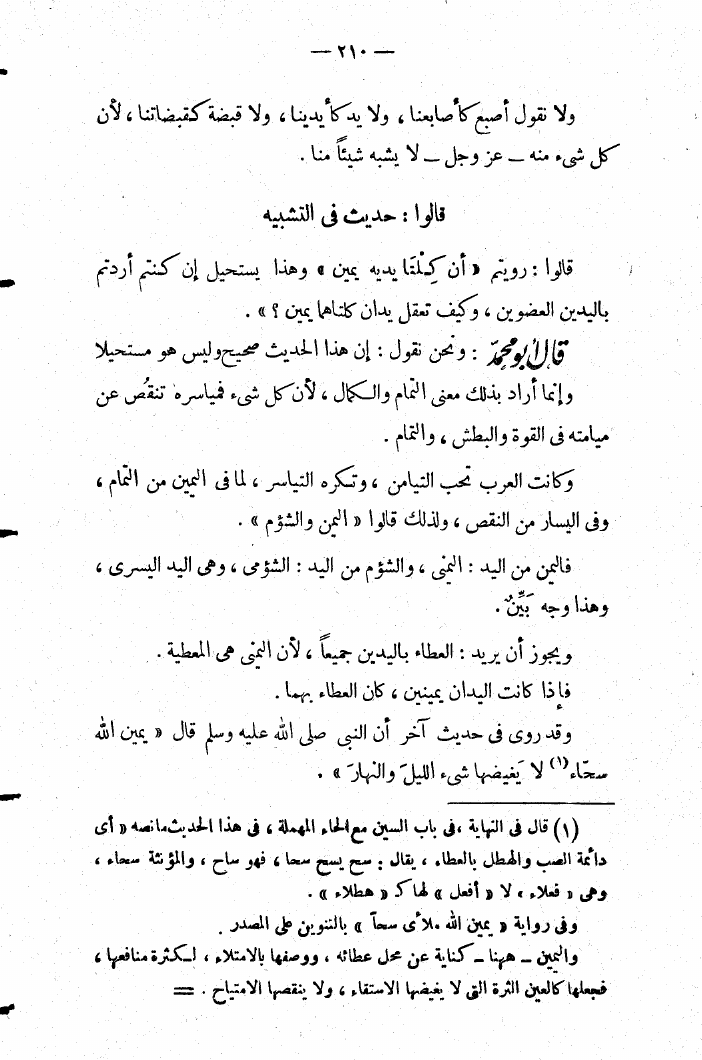 — ٢١٠ —
ولا نقول أصبع كأصابعنا ، ولا يد كأيدينا ، ولا قبضة كقبضاتنا ، لأن
كل شىء منه ــ عز وجل ــ لا يشبه شيئاً منا .
قالوا : حديث فى التشبيه
قالوا : رويتم « أن كِلْتَا يديه يمين » وهذا يستحيل إن كنتم أردتم
باليدين العضوين ، وكيف تعقل يدان كلتاهما يمين ؟ » .
قال أبو محمد : ونحن نقول : إن هذا الحديث صحيح وليس هو مستحيلا
وإنما أراد بذلك معنى التمام والكمال ، لأن كل شىء فمياسره تنقُص عن
ميامنه فى القوة والبطش ، والتمام .
وكانت العرب تحب التيامن ، وتكره التياسر ، لما فى اليمين من التمام ،
وفى اليسار من النقص ، ولذلك قالوا « اليمن والشؤم » .
فاليمن من اليد : اليمنى ، والشؤم من اليد : الشؤمى ، وهى اليد اليسرى ،
وهذا وجه بَيِّنٌ .
ويجوز أن يريد : العطاء باليدين جميعاً ، لأن اليمنى هى المعطية .
فإذا كانت اليدان يمينين ، كان العطاء بهما .
وقد روى فى حديث آخر أن النبى صلى الله عليه وسلم قال « يمين الله
سحّاء (١) لا يَغيضها شىء الليلَ والنهارَ » .
(١) قال فى النهاية ، فى باب السين مع الحاء المهملة ، فى هذا الحديث مانصه « أى
دائمة الصب والهطل بالعطاء ، يقال : سح يسح سحا ، فهو ساح ، والمؤنثة سحاء ،
وهى « فعلاء » لا « أفعل » لها كـ « هطلاء » .
وفى رواية « يمين الله ملأى سحاً » بالتنوين على المصدر .
واليمين ــ ههنا ــ كناية عن محل عطائه ، ووصفها بالامتلاء ، لكثرة منافعها ،
فجعلها كالعين الثرة التى لا يغيضها الاستقاء ، ولا ينقصها الامتياح . =